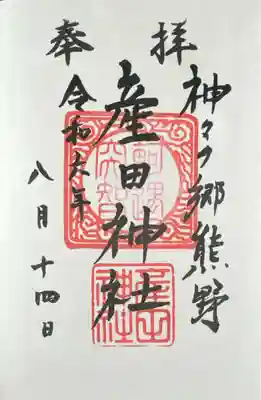 奉拝
神々乃郷熊野
産田神社
令和六年
八月十四日
産田神社